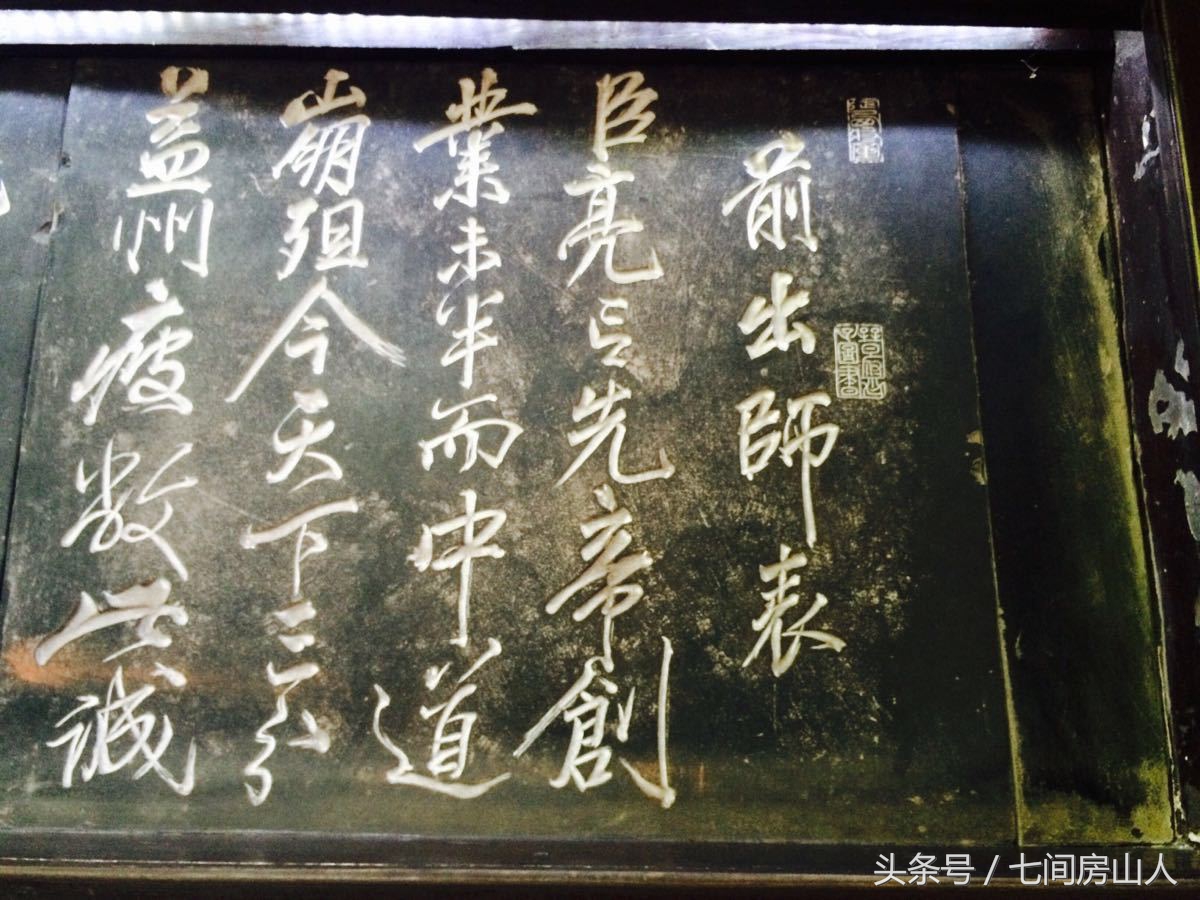 前出師表
臣亮言先帝創
業未半而中道
崩殂今天下三分
益州疲敝此誠
头条号 / 七间房山人